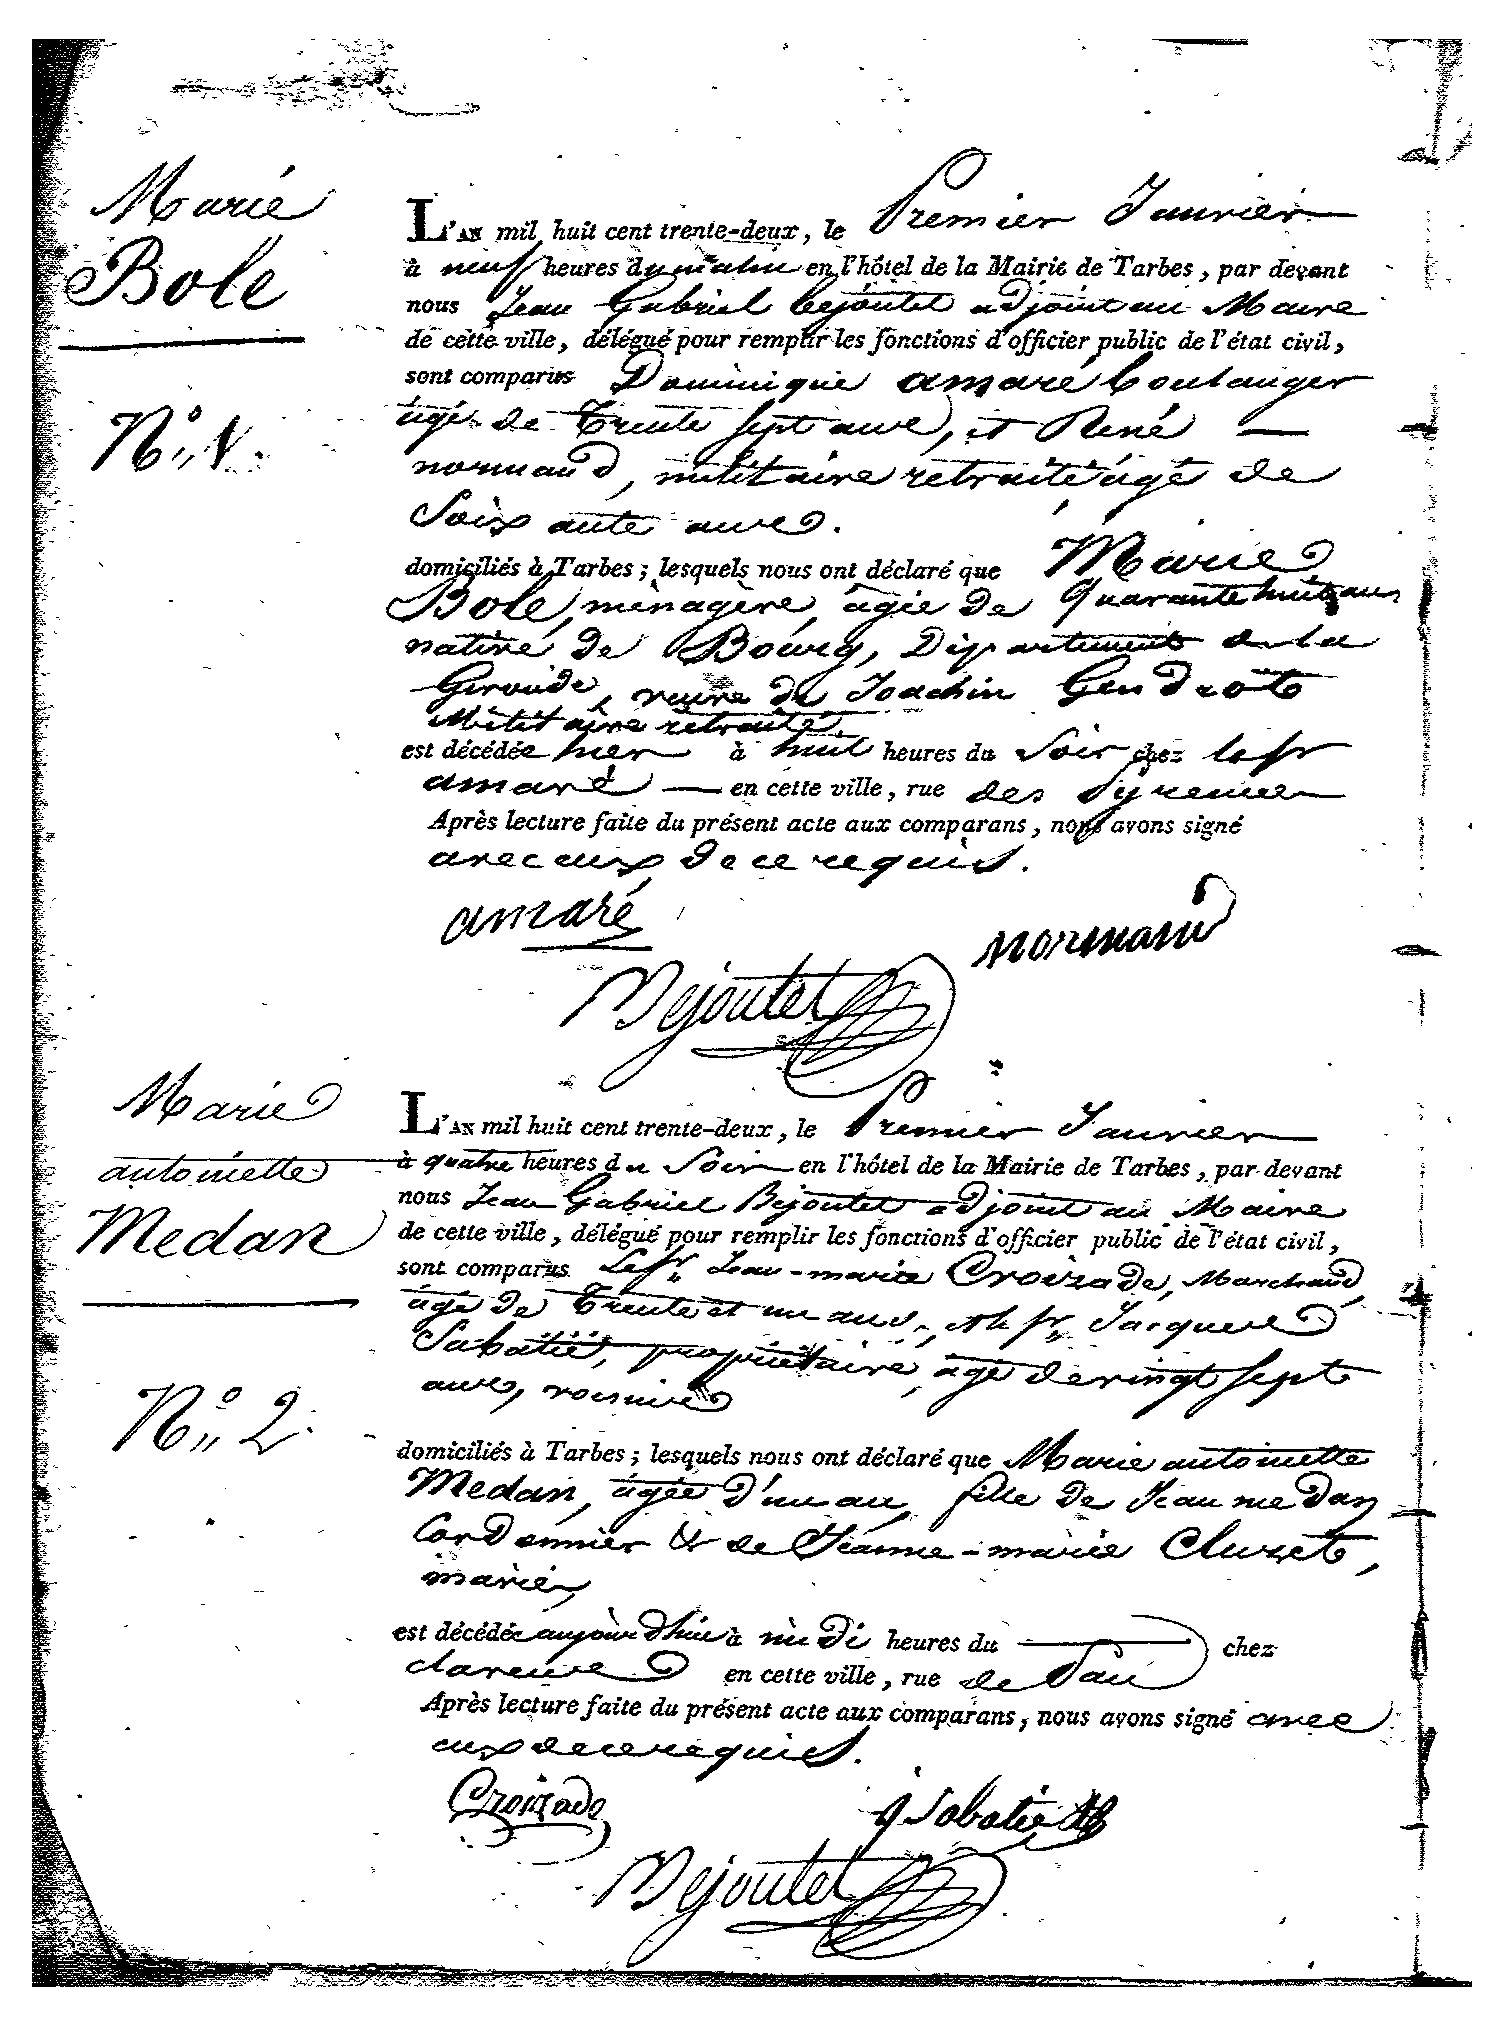 Marie
Bole
N.o 1.
L'AN mil huit cent trente-deux, le Premier Janvier
à neuf heures du matin en l'hôtel de la Mairie de Tarbes, par devant
nous Jean Gabriel Bejoutet adjoint au Maire
de cette ville, délégué pour remplir les fonctions d'officier public de l'état civil,
sont comparus Dominique amaré boulanger
âgé de Trente sept ans, et René
normand, militaire retraité âgé de
Soixante ans.
domiciliés à Tarbes; lesquels nous ont déclaré que Marie
Bole, ménagère, âgée de Quarante huit ans
native de Bourg, Département de la
Gironde, veuve de Joachin Gendrot
Militaire retraité,
est décédée hier à huit heures du Soir chez le sr
amaré en cette ville, rue des Pyrenées
Après lecture faite du présent acte aux comparans, nous avons signé
avec eux de ce requis.
amaré
normand
Bejoutet
Marie
antoinette
Medan
N.o 2.
L'AN mil huit cent trente-deux, le Premier Janvier
à quatre heures du Soir en l'hôtel de la Mairie de Tarbes, par devant
nous Jean Gabriel Bejoutet adjoint au Maire
de cette ville, délégué pour remplir les fonctions d'officier public de l'état civil,
sont comparus Le sr Jean-marie Croizade, Marchand,
âgé de Trente et un ans, et le sr Jacques
Sabatié, propriétaire, âgé de vingt sept
ans, voisins
domiciliés à Tarbes; lesquels nous ont déclaré que Marie antoinette
Medan, âgée d'un an, fille de Jean medan
Cordonnier & de Jeanne-marie Cluzet,
mariés,
est décédée aujourd'hui à midi heures du chez
en cette ville, rue de Pau
Après lecture faite du présent acte aux comparans, nous avons signé avec
eux de ce requis.
Croizade
J Sabatié
Bejoutet